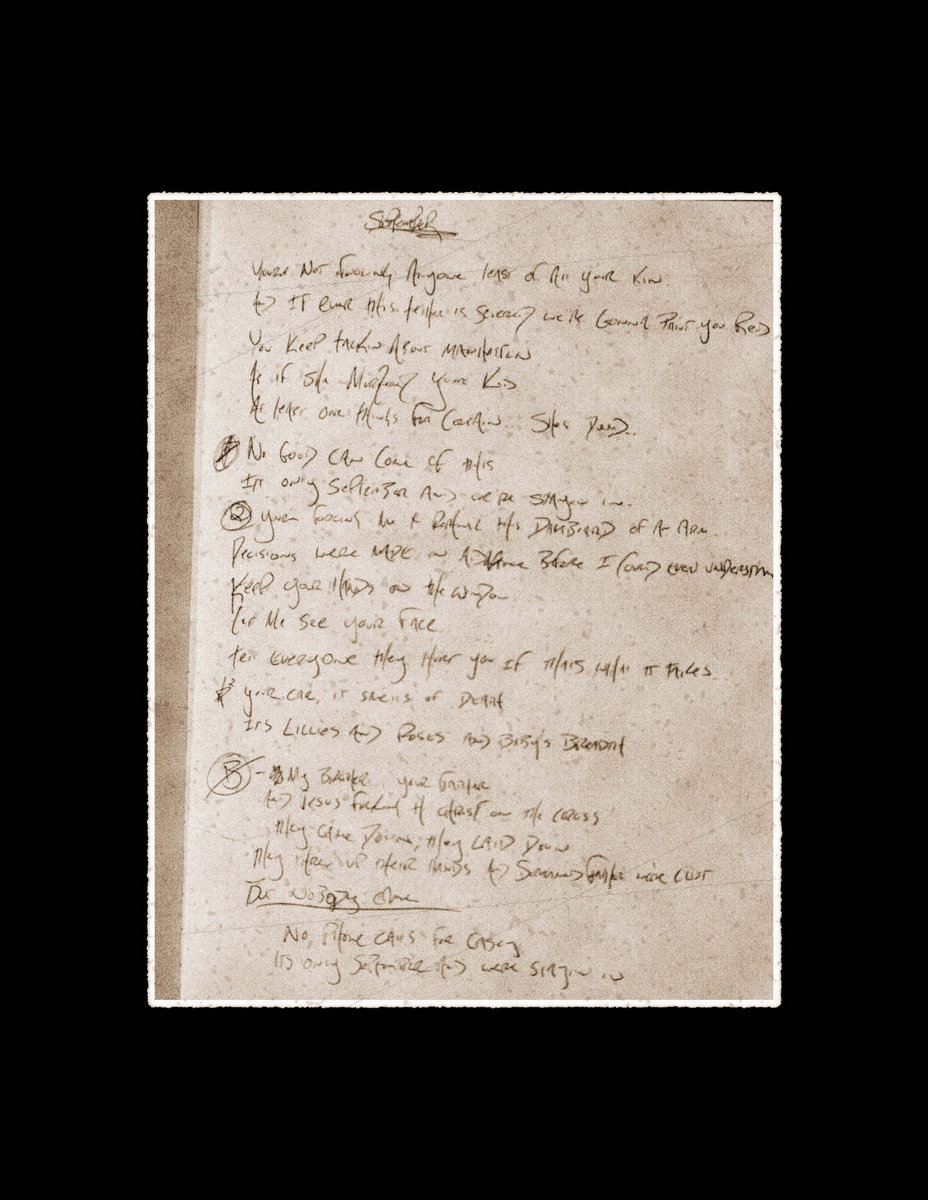 September
You're Not fooling Anyone least of All your Kin
And If ever this is severed we're Gonna Paint you Red
You Keep talkin About
As if She your Kid
At least one things for Certain Shes Dead..
No Good CAN Come of this
Its only September AND we're STAYin in..
② your me to His DAshBoard of An Arm
Decisions were MADE in A Before I Could even understAn
Keep your HANDs on the window
Let Me See your FAce
tell Everyone they Hurt you If thAts whAt it tAkes
your car, it smells of DeAth
Its Lillies And Roses And BABy's BreADth
B - My Brother your fAther
And Jesus Fucking H christ on the cross
they CAme Down, they LAiD Down
they threw up their HANDs And were Lost
But NoBoDy CAme
No, PHone CAlls For CAsey
Its only September AND were STAyin in